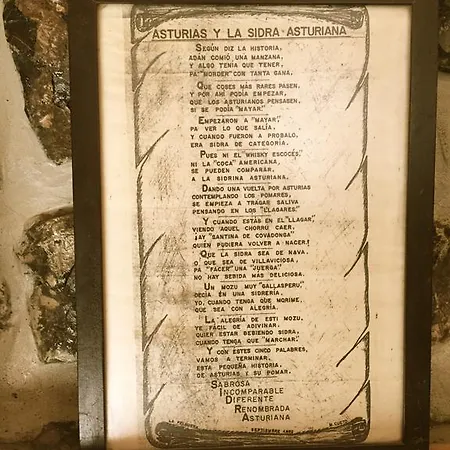 ASTURIAS Y LA SIDRA ASTURIANA
SEGÚN DIZ LA HISTORIA,
ADAN COMIÓ UNA MANZANA,
Y ALGO TENIA QUE TENER,
PA "MORDER" CON TANTA GANA,
QUE COSES MAS RARES PASEN,
Y POR AHÍ PODÍA EMPEZAR,
QUE LOS ASTURIANOS PENSASEN,
SI SE PODÍA "MAYAR".
EMPEZARON A "MAYAR",
PA VER LO QUE SALÍA,
Y CUANDO FUERON A PROBALO,
ERA SIDRA DE CATEGORÍA.
PUES NI EL "WHISKY ESCOCÉS",
NI LA "COCA" AMERICANA,
SE PUEDEN COMPARAR,
A LA SIDRINA ASTURIANA.
DANDO UNA VUELTA POR ASTURIAS
CONTEMPLANDO LOS POMARES,
SE EMPIEZA A TRAGAR SALIVA
PENSANDO EN LOS "LLAGARES"
Y CUANDO ESTÁS EN EL "LLAGAR",
VIENDO AQUEL CHORRU CAER,
¡AY "SANTINA DE COVADONGA"
QUIEN PUDIERA VOLVER A NACER!
QUE LA SIDRA SEA DE NAVA,
O QUE SEA DE VILLAVICIOSA,
PA "FACER" UNA "JUERGA"
NO HAY BEBIDA MÁS DELICIOSA.
UN MOZU MUY "GALLASPERU",
DECÍA EN UNA SIDRERÍA,
YO, CUANDO TENGA QUE MORIME,
QUE SEA CON ALEGRÍA.
LA ALEGRÍA DE ESTI MOZU,
YE FÁCIL DE ADIVINAR,
QUIER ESTAR BEBIENDO SIDRA,
CUANDO TENGA QUE "MARCHAR".
Y CON ESTES CINCO PALABRES,
VAMOS A TERMINAR,
ESTA PEQUEÑA HISTORIA,
DE ASTURIAS Y SU POMAR.
SABROSA
INCOMPARABLE
DIFERENTE
RENOMBRADA
ASTURIANA
SEPTIEMBRE